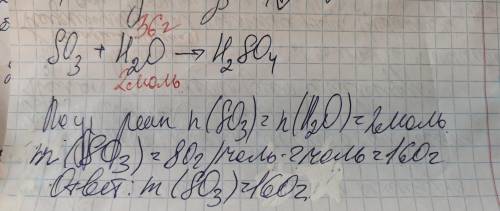 36г
SO₃ + H₂O → H₂SO₄
2моль
По ур. реак n(SO₃)=n(H₂O)=2моль
m (SO₃)=80г/моль·2моль=160г
Ответ: m(SO₃)=160г.